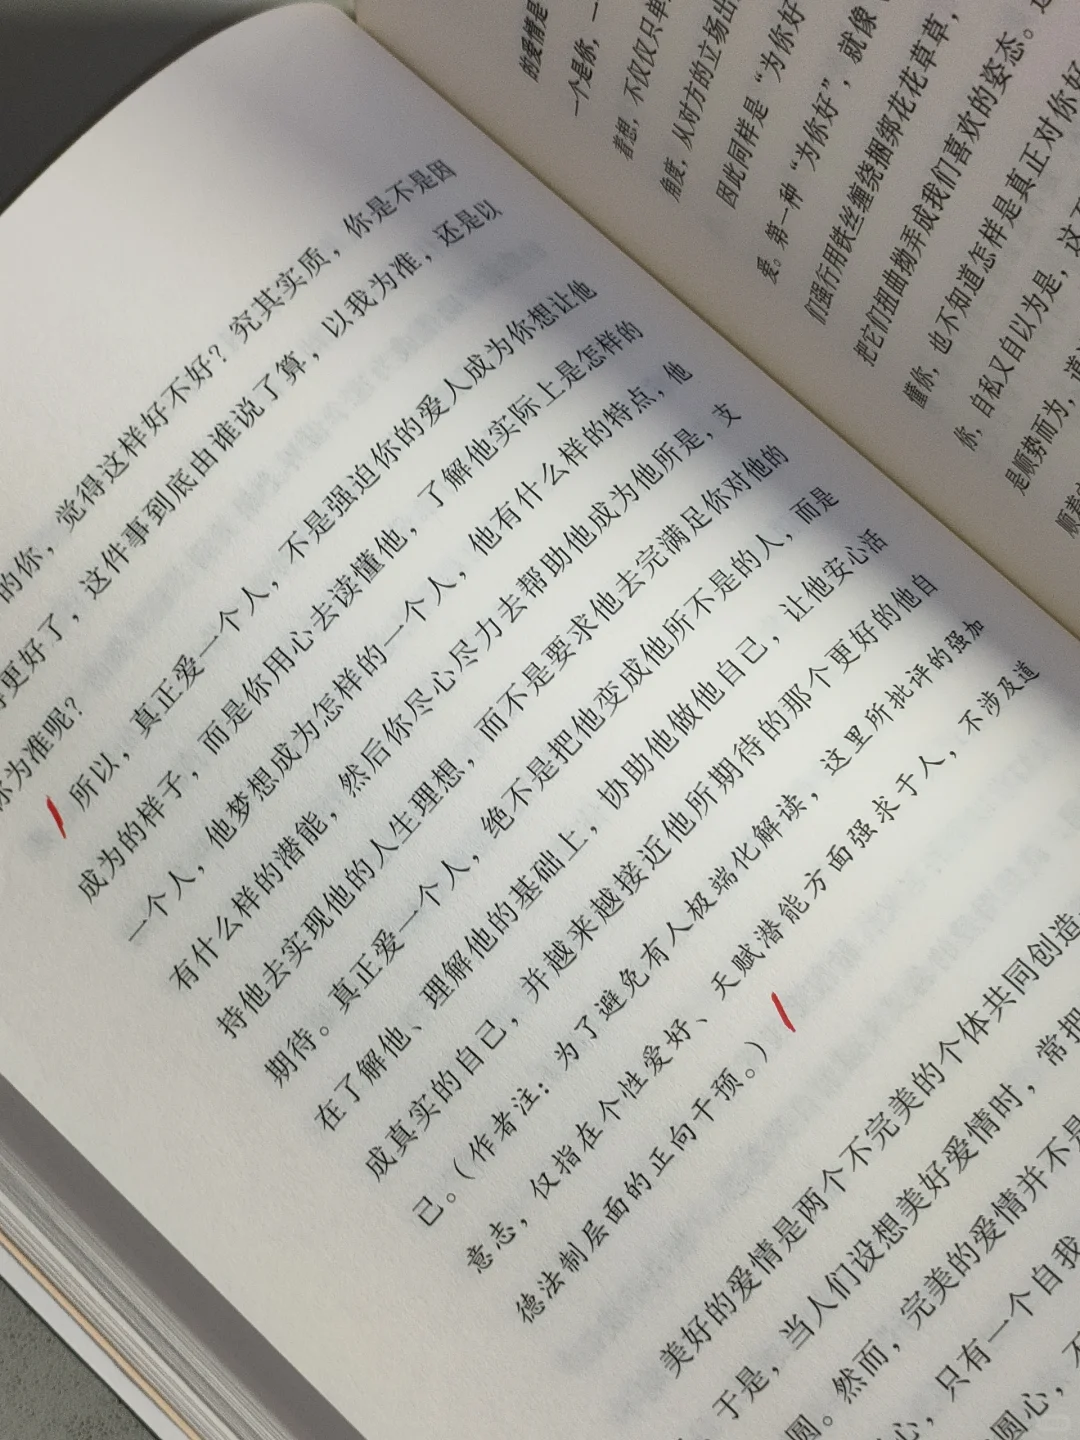 的你，觉得这样好不好？究其实质，你是不是因
得更好了，这件事到底由谁说了算，以我为准，还是以
你为准呢？
所以，真正爱一个人，不是强迫你的爱人成为你想让他
成为的样子，而是你用心去读懂他，了解他实际上是怎样的
一个人，他梦想成为怎样的一个人，他有什么样的特点，他
有什么样的潜能，然后你尽心尽力去帮助他成为他所是，支
持他去实现他的人生理想，而不是要求他去完满足你对他的
期待。真正爱一个人，绝不是把他变成他所不是的人，而是
在了解他、理解他的基础上，协助他做他自己，让他安心活
成真实的自己，并越来越接近他所期待的那个更好的他自
己。（作者注：为了避免有人极端化解读，这里所批评的强加
意志，仅指在个性爱好、天赋潜能方面强求于人，不涉及道
德法制层面的正向干预。）
美好的爱情是两个不完美的个体共同创造
于是，当人们设想美好爱情时，常把
圆。然而，完美的爱情并不是
心，只有一个自我
圆心，不
的爱情是
一个是你，一
着想，不仅仅只单
角度，从对方的立场出
因此同样是“为你好
爱。第一种“为你好”，就像
们强行用铁丝缠绕捆绑花花草草，
把它们扭曲拗弄成我们喜欢的姿态。这
懂你，也不知道怎样是真正对你好
你，自私又自以为是，这不
是顺势而为，道
顺着